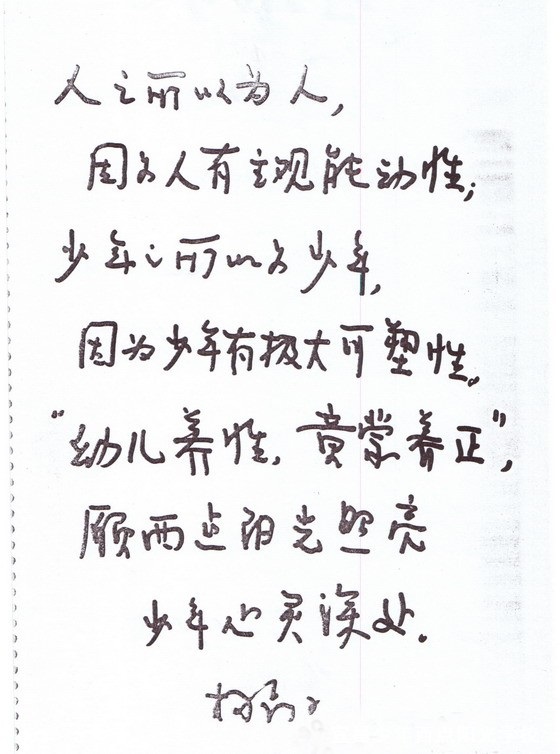 人之所以为人，
因为人有主观能动性；
少年之所以为少年，
因为少年有极大可塑性。
“幼儿养性，童蒙养正”，
愿阳光照亮
少年心灵深处。